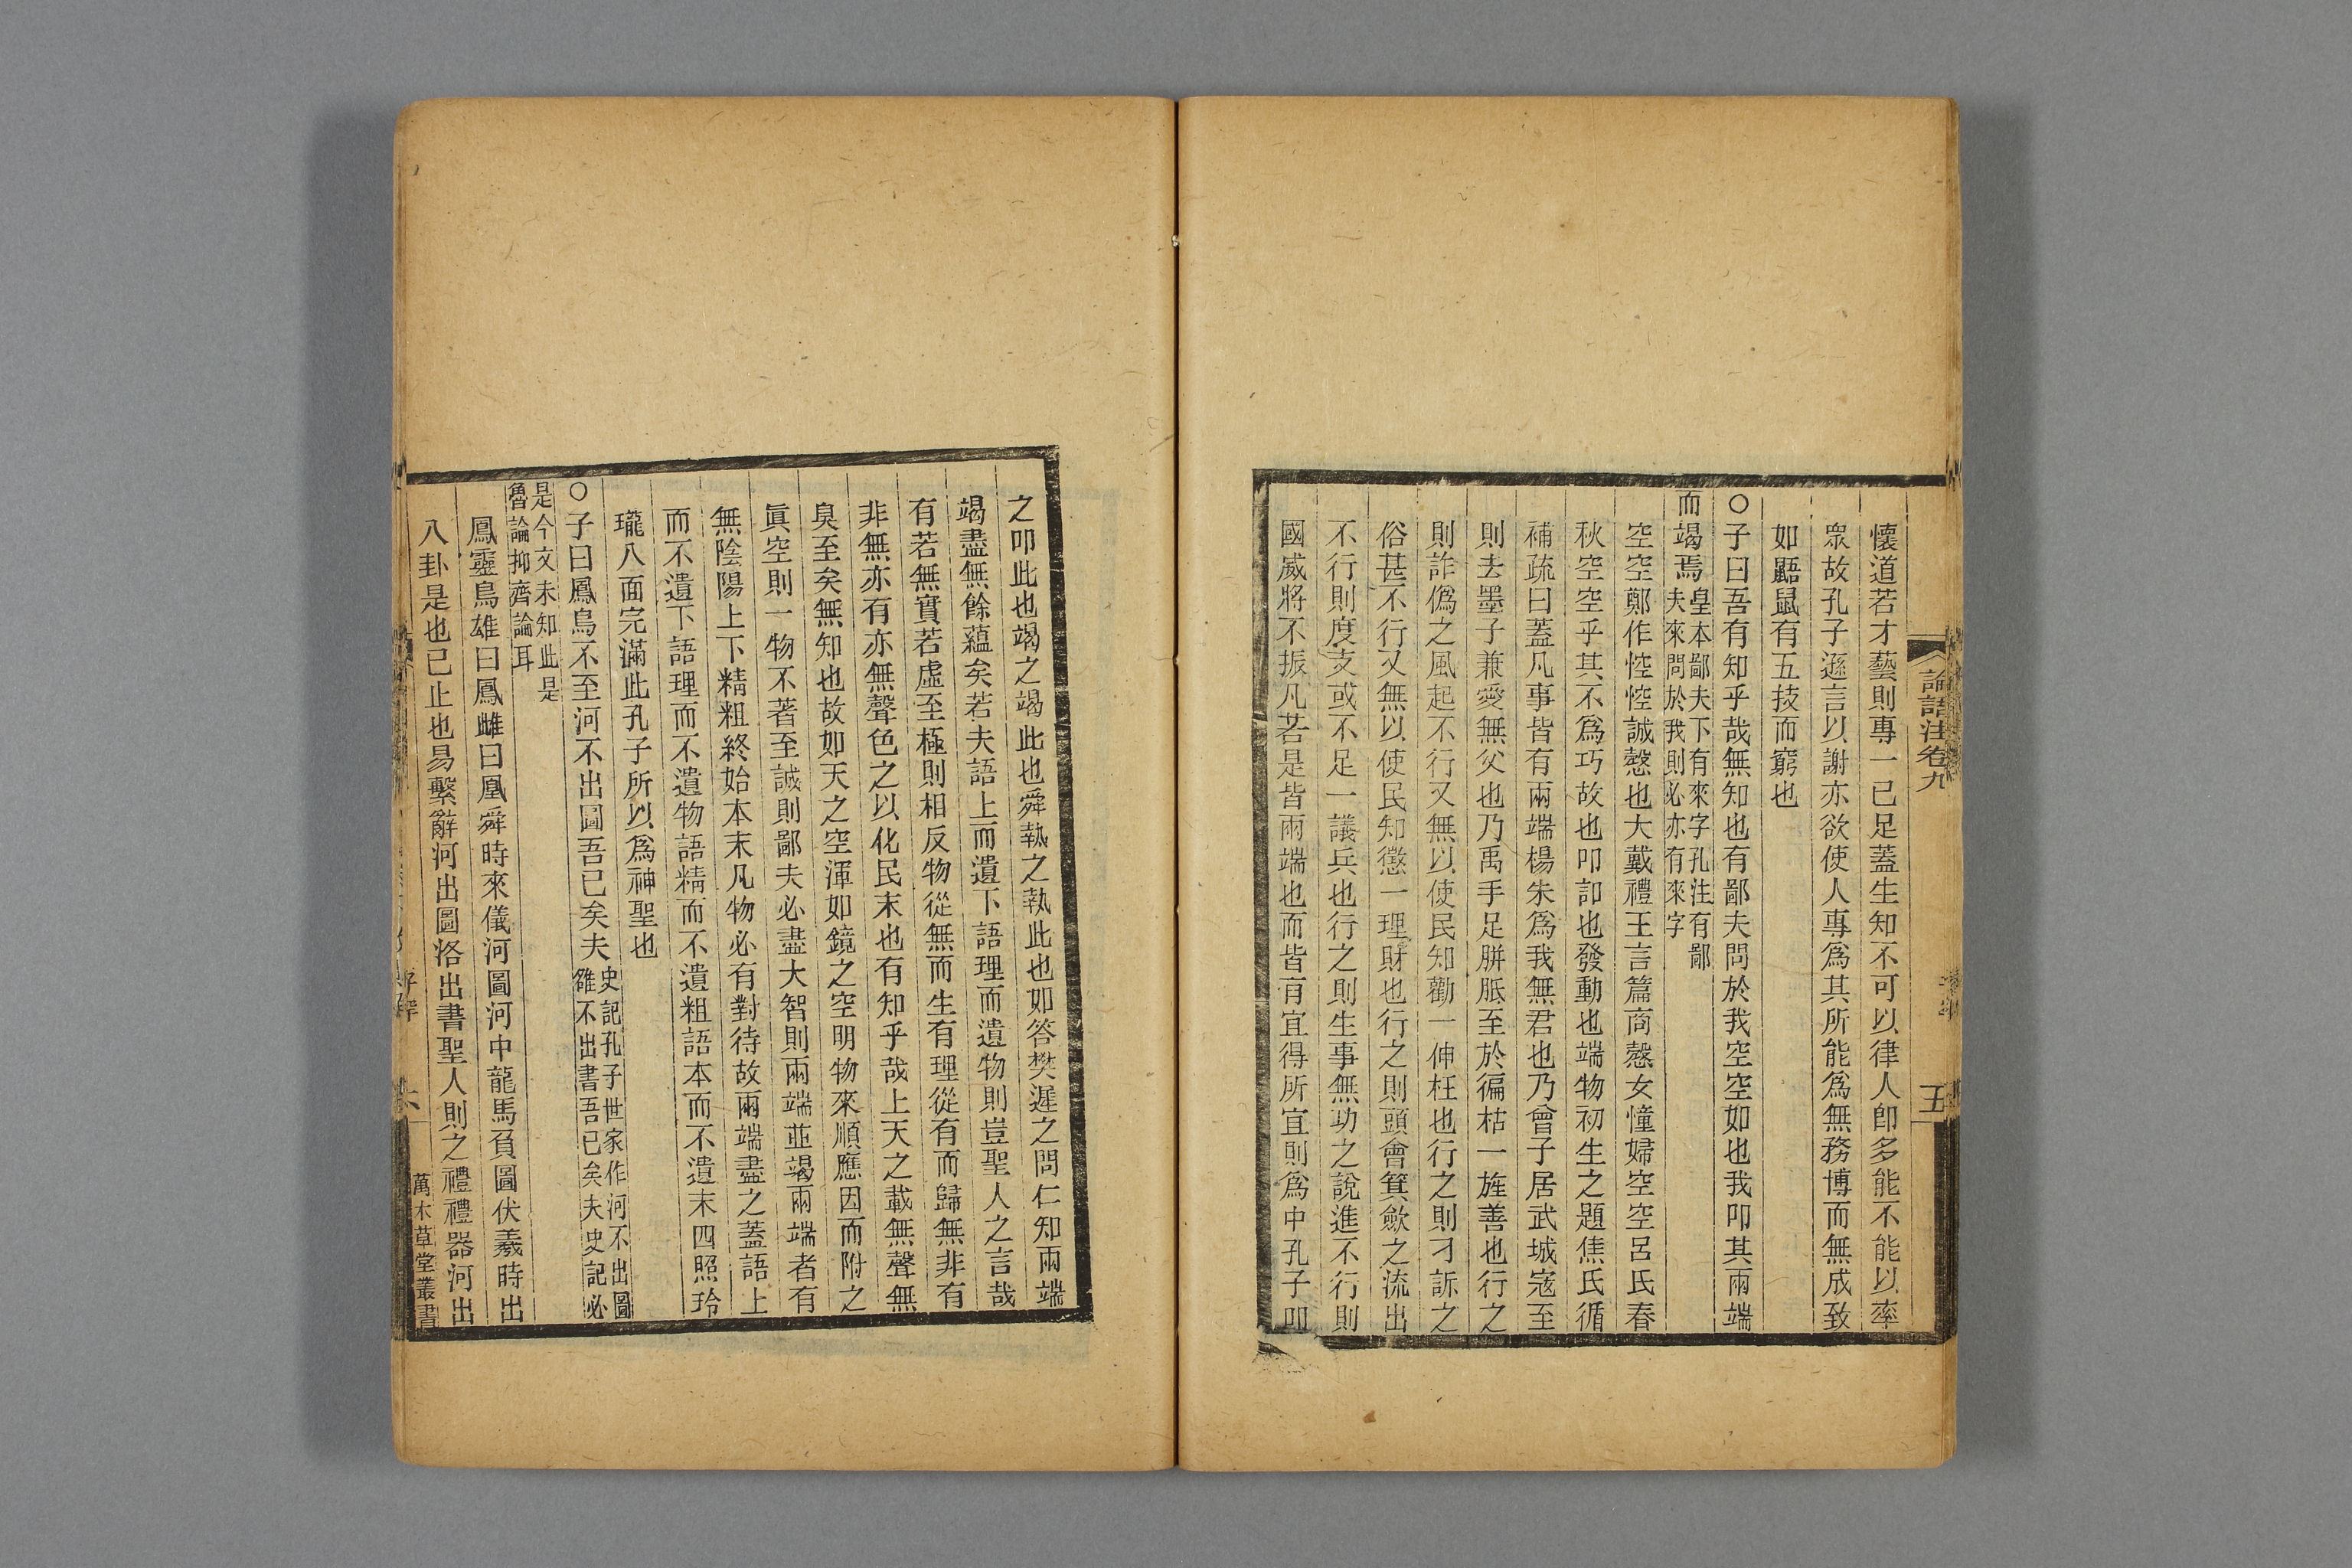 論語注卷九
五
懷道若才藝則專一已足蓋生知不可以律人卽多能不能以率
衆故孔子遜言以謝亦欲使人專爲其所能爲無務博而無成致
如鼯鼠有五技而窮也
○子曰吾有知乎哉無知也有鄙夫問於我空空如也我叩其兩端
而竭焉皇本鄙夫下有來字孔注有鄙
夫來問於我則必亦有來字
空空鄭作悾悾誠慤也大戴禮王言篇商慤女憧婦空空呂氏春
秋空空乎其不爲巧故也叩訆也發動也端物初生之題焦氏循
補疏曰蓋凡事皆有兩端楊朱爲我無君也乃曾子居武城寇至
則去墨子兼愛無父也乃禹手足胼胝至於徧枯一旌善也行之
則詐僞之風起不行又無以使民知勸一伸枉也行之則刁訴之
俗甚不行又無以使民知懲一理財也行之則頭會箕斂之流出
不行則度支或不足一議兵也行之則生事無功之說進不行則
國威將不振凡若是皆兩端也而皆有宜得所宜則爲中孔子叩
之叩此也竭之竭此也舜執之執此也如答樊遲之問仁知兩端
竭盡無餘蘊矣若夫語上而遺下語理而遺物則豈聖人之言哉
有若無實若虛至極則相反物從無而生有理從有而歸無非有
非無亦有亦無聲色之以化民末也有知乎哉上天之載無聲無
臭至矣無知也故如天之空渾如鏡之空明物來順應因而附之
眞空則一物不著至誠則鄙夫必盡大智則兩端並竭兩端者有
無陰陽上下精粗終始本末凡物必有對待故兩端盡之蓋語上
而不遺下語理而不遺物語精而不遺粗語本而不遺末四照玲
瓏八面完滿此孔子所以爲神聖也
○子曰鳳鳥不至河不出圖吾已矣夫史記孔子世家作河不出圖
雒不出書吾已矣夫史記必
是今文未知此是
魯論抑齊論耳
鳳靈鳥雄曰鳳雌曰凰舜時來儀河圖河中龍馬負圖伏羲時出
八卦是也已止也易繫辭河出圖洛出書聖人則之禮禮器河出
萬木草堂叢書